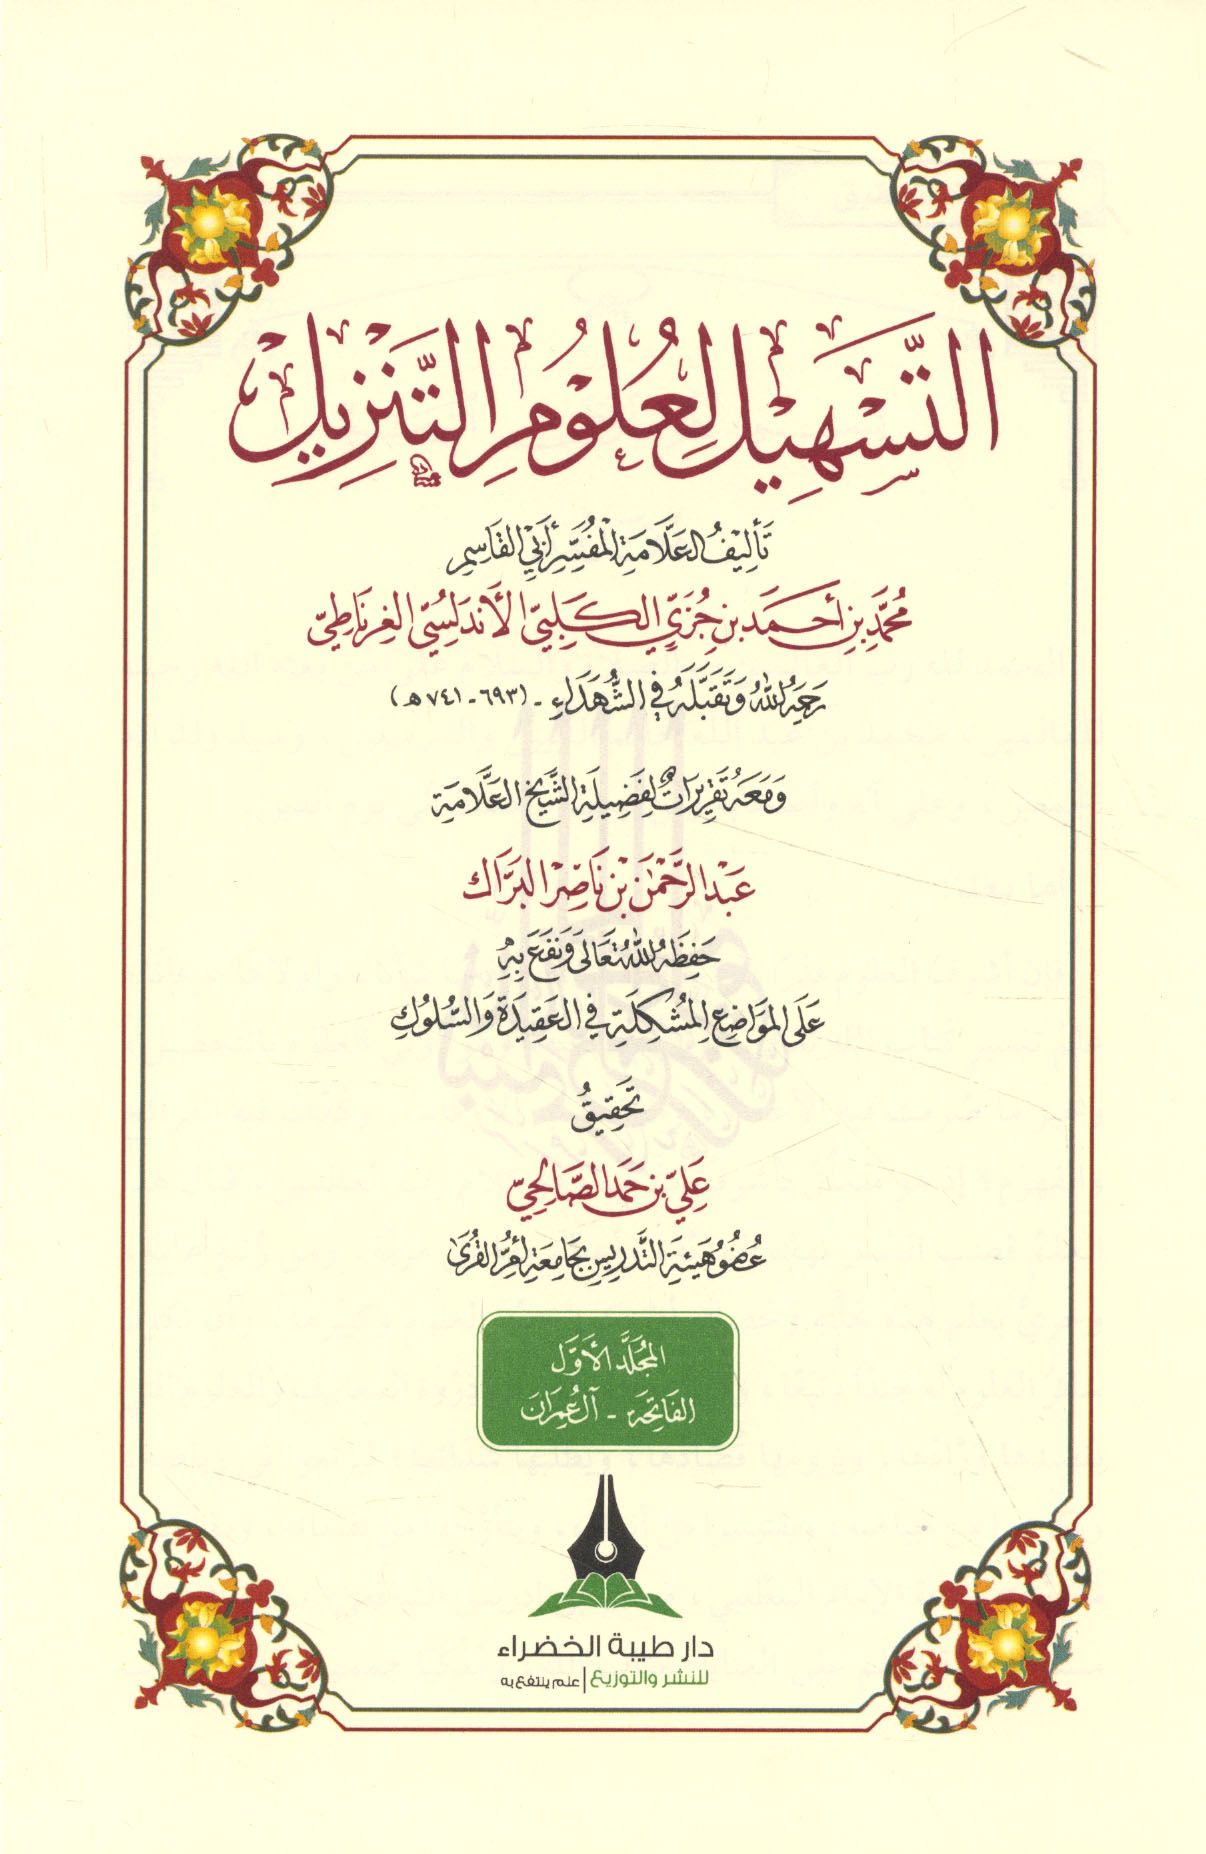 التَّسْهِيلُ لِعُلُومِ التَّنْزِيلِ
تَأْلِيفُ العَلَّامَةِ المُفَسِّرِ أَبِي القَاسِمِ
مُحَمَّدِ بنِ أَحْمَدَ بنِ جُزَيٍّ الكَلْبِيِّ الأَنْدَلُسِيِّ الغِرْنَاطِيِّ
رَحِمَهُ اللهُ وَتَقَبَّلَهُ فِي الشُّهَدَاءِ - (٦٩٣ - ٧٤١ هـ)
وَمَعَهُ تَقْرِيرَاتٌ لِفَضِيلَةِ الشَّيْخِ العَلَّامَةِ
عَبْدِ الرَّحْمَٰنِ بْنِ نَاصِرٍ البَرَّاكِ
حَفِظَهُ اللهُ تَعَالَى وَنَفَعَ بِهِ
عَلَى المَوَاضِعِ المُشْكِلَةِ فِي العَقِيدَةِ وَالسُّلُوكِ
تَحْقِيقُ
عَلِيّ بْنِ حَمَد الصَّالِحِيّ
عُضْوُ هَيْئَةِ التَّدْرِيسِ بِجَامِعَةِ أُمِّ القُرَى
المُجَلَّدُ الأَوَّلُ
الفَاتِحَة - آل عِمْرَانَ
دار طيبة الخضراء
للنشر والتوزيع | علم ينتفع به